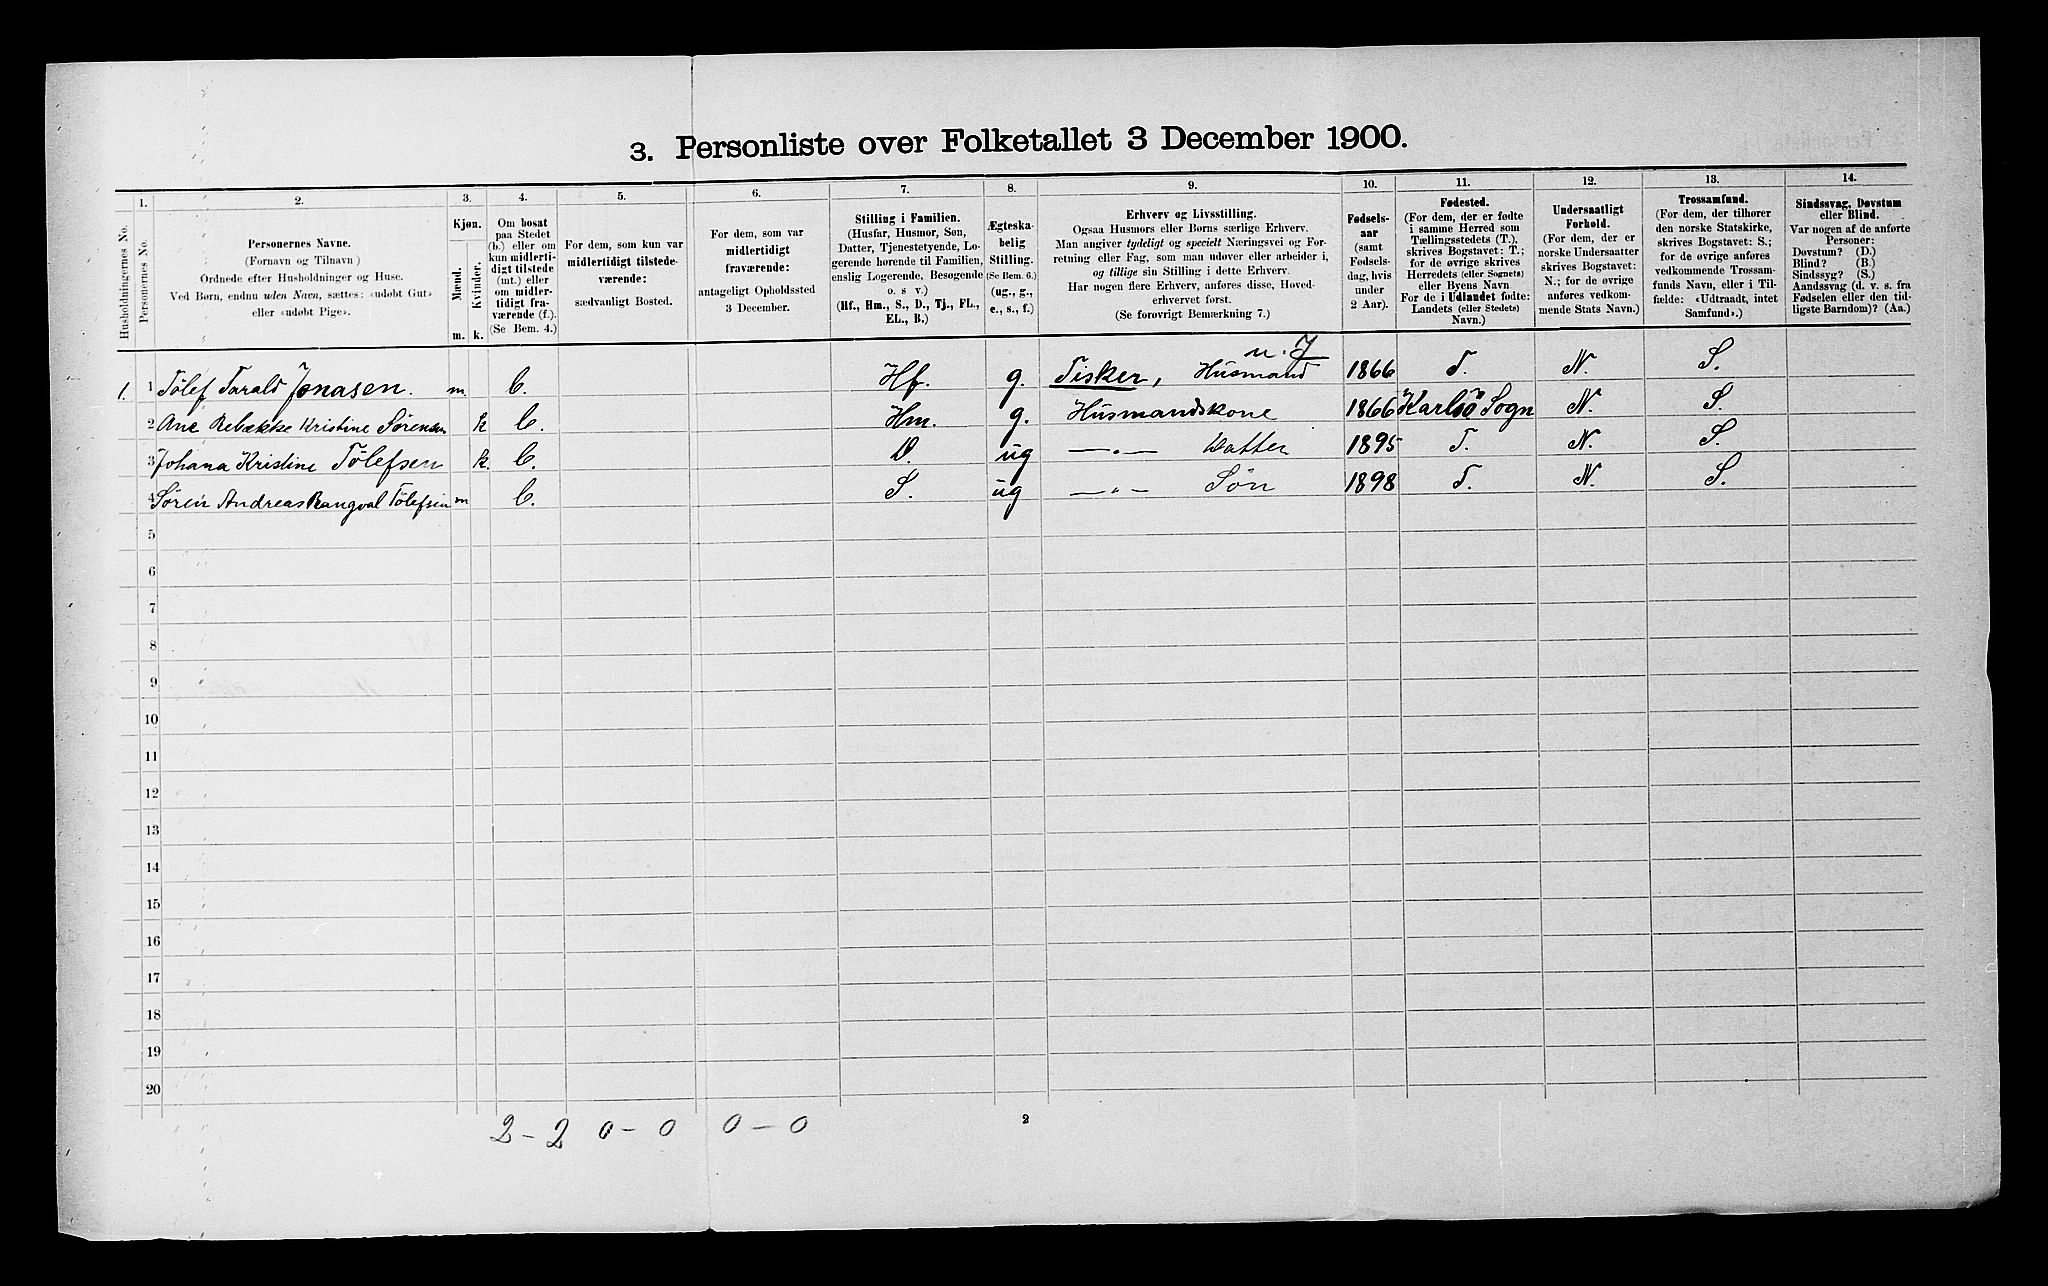 3. Personliste over Folketallet 3 December 1900.
Husholdningernes No.
1.
Personernes No.
2.
Personernes Navne.
(Fornavn og Tilnavn)
Ordnede efter Husholdninger og Huse.
Ved Børn, endnu uden Navn, sættes: «udøbt Gut»
eller «udøbt Pige».
3.
Kjøn.
Mænd.
Kvinder.
m. k.
4.
Om bosat
paa Stedet
(b.) eller om
kun midlerti-
digt tilstede
(mt.) eller
om midler-
tidigt fra-
værende (f.).
(Se Bem. 4.)
5.
For dem, som kun var
midlertidigt tilstede-
værende:
sædvanligt Bosted.
6.
For dem, som var
midlertidigt
fraværende:
antageligt Opholdssted
3 December.
7.
Stilling i Familien.
(Husfar, Husmor, Søn,
Datter, Tjenestetyende, Lo-
gerende hørende til Familien,
enslig Logerende, Besøgende
o. s v.)
(Hf., Hm., S., D., Tj., FL.,
EL., B.)
8.
Ægteska-
belig
Stilling.
(Se Bem. 6.)
(ug., g.,
e., s., f.)
9.
Erhverv og Livsstilling.
Ogsaa Husmors eller Børns særlige Erhverv.
Man angiver tydeligt og specielt Næringsvei og For-
retning eller Fag, som man udøver eller arbeider i,
og tillige sin Stilling i dette Erhverv.
Har nogen flere Erhverv, anføres disse, Hoved-
erhvervet først.
(Se forøvrigt Bemærkning 7.)
10.
Fødsels-
aar
(samt
Fødsels-
dag, hvis
under
2 Aar).
11.
Fødested.
(For dem, der er fødte
i samme Herred som
Tællingsstedets (T.),
skrives Bogstavet: T.;
for de øvrige skrives
Herredets (eller Sognets)
eller Byens Navn
For de i Udlandet fødte:
Landets (eller Stedets)
Navn.)
12.
Undersaatligt
Forhold.
(For dem, der er
norske Undersaatter
skrives Bogstavet:
N.; for de øvrige
anføres vedkom-
mende Stats Navn.)
13.
Trossamfund.
(For dem, der tilhører
den norske Statskirke,
skrives Bogstavet: S.;
for de øvrige anføres
vedkommende Trossam-
funds Navn, eller i Til-
fælde: «Udtraadt, intet
Samfund».)
14.
Sindssvag, Døvstum
eller Blind.
Var nogen af de anførte
Personer:
Døvstum? (D.)
Blind? (B.)
Sindssyg? (S.)
Aandssvag (d. v. s. fra
Fødselen eller den tid-
ligste Barndom)? (Aa.)
u. J
1. 1 Tølef Tarald Jonasen. m. b. Hf. g. Tisker, Husmand 1866 T. N. S.
2 Ane Rebække Kristine Sørensen k b. Hm. g. Husmandskone 1866 Karlsö Sogn N. S.
3 Johana Kristine Tølefsen k. b. D. ug —„— Datter 1895 T. N. S.
4 Søren Andreas Rangval Tølefsen m b. S. ug —„— Søn 1898 T. N. S.
5
6
7
8
9
10
11
12
13
14
15
16
17
18
19
20
2 - 2 0 - 0 0 - 0
2